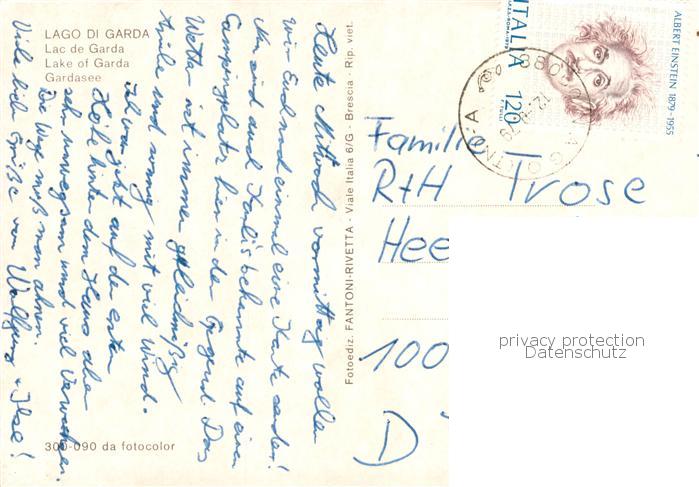 LAGO DI GARDA
Lac de Garda
Lake of Garda
Gardasee
Heute Mittwoch vormittag wollen
wir Euch auch einmal eine Karte senden!
Wir sind auch Karli's bekannte auf einem
Campingplatz hier in der Gegend. Das
Wetter ist immer gleichmäßig
und sonnig mit viel Wind.
Ich war jetzt auf der ersten
Höhe hinter dem Haus aber
sehr unwegsam und viel
Die Wege muß man ahnen.
Viele liebe Grüße von Wolfgang + Ilse!
300-090 da fotocolor
Fotoediz. FANTONI-RIVETTA - Viale Italia 6/G - Brescia - Rip. viet.
ITALIA 120
ALBERT EINSTEIN 1879-1955
Familie
R+H Trose
Hee
100
D
privacy protection
Datenschutz